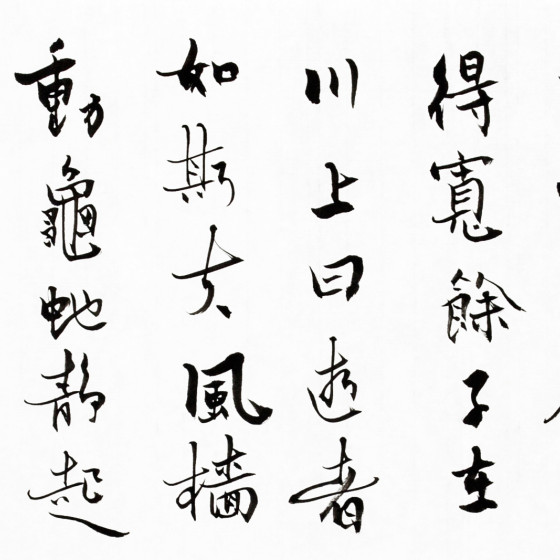 得寬餘子在
川上曰逝者
如斯夫風檣
動龜蛇靜起